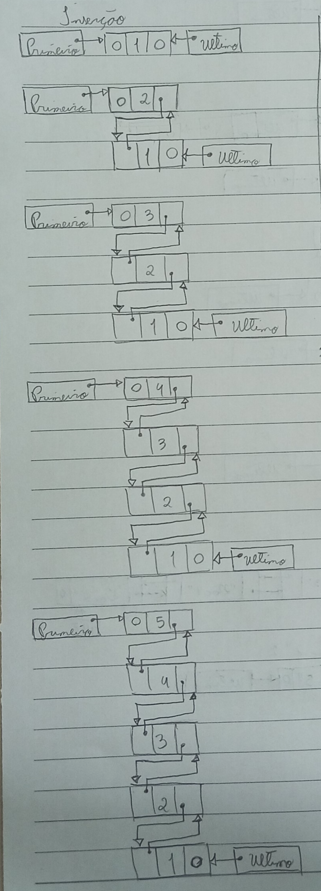 Inserção
Primeiro 0 1 0 Ultimo
Primeiro 0 2
1 0 Ultimo
Primeiro 0 3
2
1 0 Ultimo
Primeiro 0 4
3
2
1 0 Ultimo
Primeiro 0 5
4
3
2
1 0 Ultimo